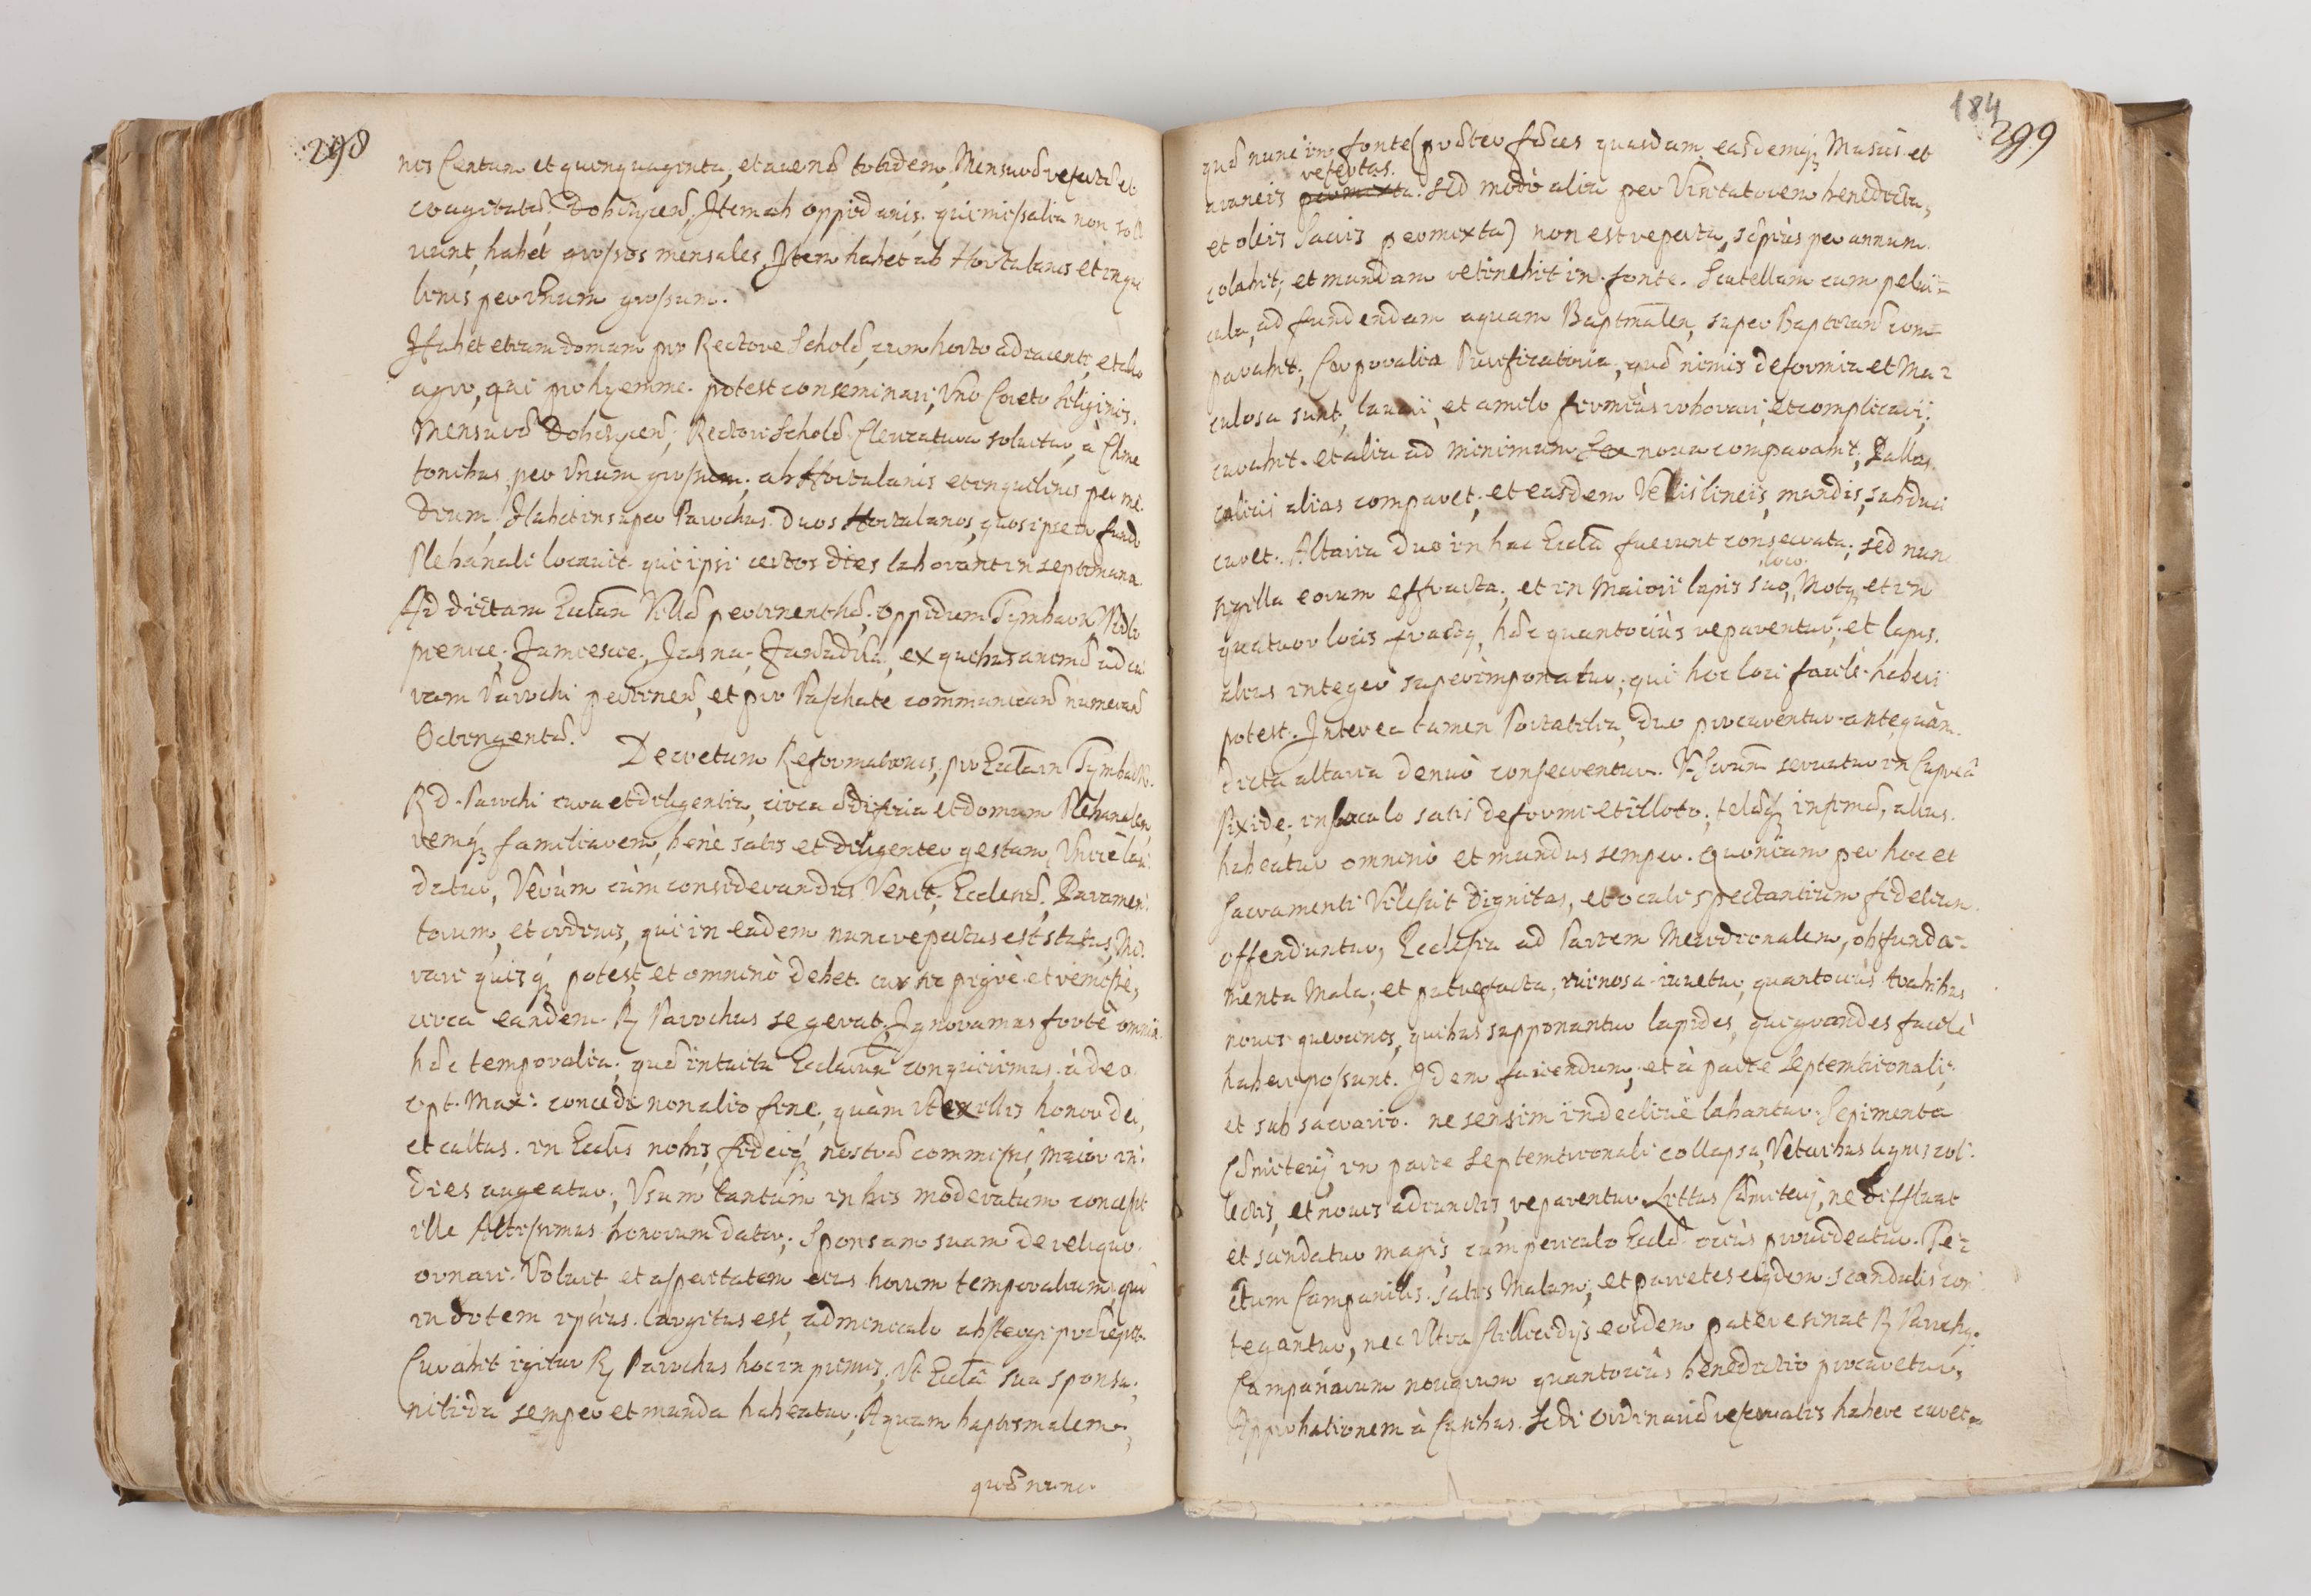 298
nos Centum et quinquaginta, et auenæ totidem, Mensuræ refertæ et
coagitatæ, Dobczycen. Item ab oppidanis, qui missalia non sol
uunt, habet grossos mensales, Item habet ab Hortulanis et inqui
linis per unum grossum.
Habet etiam domum pro Rectore Scholæ, cum horto adiacente, et
agro, qui pro hyemme potest conseminari, Vno Coreto siliginis.
Mensuræ Dobczycen; Rectori Scholæ Clericatura soluitur, à Cme
tonibus, per Vnum grossum, ab Hortulanis et inquilinis per me
dium, Habet insuper Parochus duos Hortulanos, quos ipse in fundo
Plebanali locauit qui ipsi certos dies laborant in septimana.
Ad dictam Ecclam Villæ pertinentes, Oppidum Tymbark
Jasna, ex quibus animæ ad cu
ram Parochi pertinen, et pro Paschate communican numeran
Octingentæ.
Decretum Reformationis, pro Eccla in Tymbark.
Rd. Parochi cura et diligentia, circa ædificia et domum Plebanalem,
remq familiarem, bene satis et diligenter gestam, Vnice lau
datur, Verùm cùm considerandus Venit, Ecclesiæ, Paramen
torum, et ordinis, qui in eadem nunc repertus est status, Mi
rari quisq potest, et omninò debet cur sic pigrè et remissè,
circa eandem R Parochus se gerat, Ignoramus fortè omnia
hæc temporalia, quæ intuitu Ecclarum conquirimus, à deo
opt. Max: concedi non alio fine, quàm Vt ex illis honor dei,
et cultus in Ecclis nobis, fideiq nostræ commissis, maior in
dies augeatur, Vsum tantum in his moderatum concessit
ille Altissimus bonorum dator, Sponsam suam de reliquo
ornari Voluit et aspertatem eius horum temporalium, quæ
in dotem ipsius largitus est, adminiculo abstergi præcepit.
Curabit igitur R Parochus hoc in primis, Vt Eccla sua sponsa,
nitida semper et munda habeatur, Aquam baptismalem,
quæ nunc
184
299
quæ nunc in fonte (præter fæces quasdam easdemq Muscis et
refertas.
araneis permixta. sed modò alia per Visitatorem benedicta,
et oleis Sacris permixta) non est reperta, sæpiùs per annum
colabit, et mundam retinebit in fonte. Scutellam cum pelui=
cula, ad fundendam aquam Baptmalem, super Baptizand com=
parabit, Corporalia Purificatoria, quæ nimis deformia et Ma=
culosa sunt, lauari, et amilo firmiùs roborari, et complicari,
curabit et alia ad minimum Sex noua comparabit, Pallas
calicis alias comparet, et easdem Velis lineis, mundis, subduci
curet. Altaria duo in hac Eccla fuerunt consecrata, sed nunc
loco
sigilla eorum effracta, et in Maiori lapis suo, Motq, et in
quatuor locis fractq, hæc quantociùs reparentur, et lapis
alius integer superimponatur, qui hoc loci facilè haberi
potest. Interea tamen Portatilia, duo procurentur antequàm
dicta altaria denuò consecrentur. V. Scrum seruatur in Cuprea
Pixide, in sacculo satis deformi et illoto, telæq infimæ, alius
habeatur omninò et mundus semper. Quoniam per hoc et
Sacramenti Vilescit Dignitas, et oculi spectantium fidelium
offenduntur, Ecclesia ad Partem Meridionalem, ob funda=
menta Mala, et putrefacta, ruinosa iuuetur, quantociùs trabibus
nouis quercinis, quibus supponantur lapides, qui grandes facilè
haberi possunt. Idem faciendum, et à parte Septemtrionali,
et sub sacrario. ne sensim in decliuè labantur. Sepimenta
Cæmiterij in parte Septemtrionali collapsa, Veturibus lignis col
lectis, et nouis adiunctis, reparentur Littus Cæmiterij, ne diffluat
et scindatur magis, cum periculo Ecclæ ociùs prouideatur. Te=
ctum Campanilis satis Malum, et parietes eiqdem scandulis con
tegantur, nec Vltra stillicidijs eisdem patere sinat R Parochq.
Campanarum nouarum quantociùs benedictio procuretur,
Approbationem à Casibus Sedi Ordinariæ reseruatis habere curet